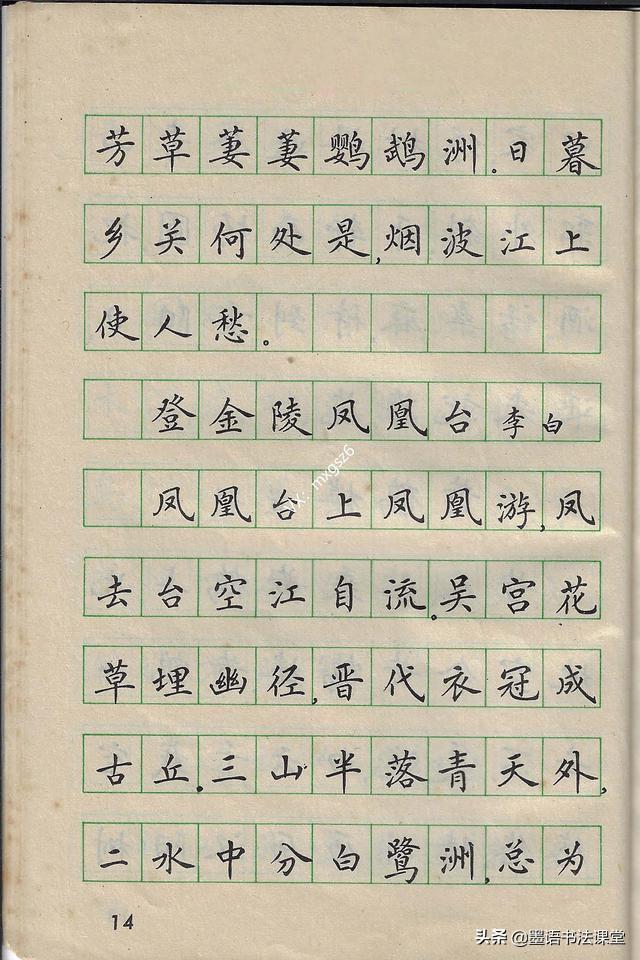 芳草萋萋鹦鹉洲.日暮
乡关何处是,烟波江上
使人愁。
登金陵凤凰台 李白
凤凰台上凤凰游,凤
去台空江自流。吴宫花
草埋幽径,晋代衣冠成
古丘.三山半落青天外,
二水中分白鹭洲,总为
14
VX: mxgsz6
头条 @墨语书法课堂